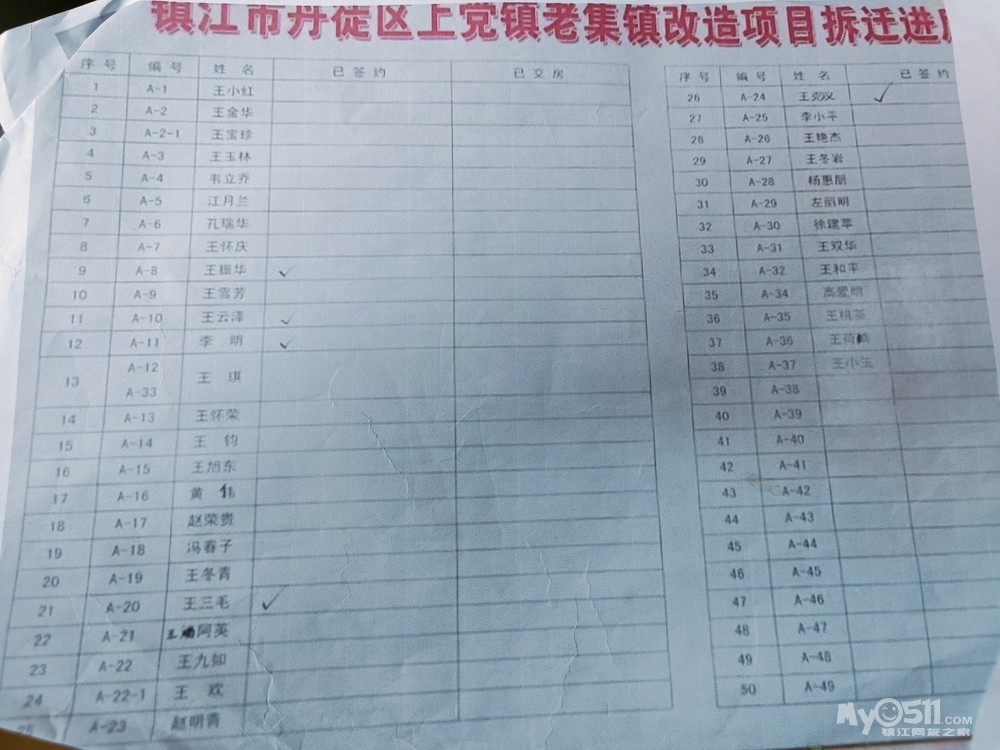 镇江市丹徒区上党镇老集镇改造项目拆迁进
序号 编号 姓名 已签约 已交房
1 A-1 王小红
2 A-2 王金华
3 A-2-1 王宝珍
4 A-3 王玉林
5 A-4 韦立乔
6 A-5 江月兰
7 A-6 孔瑞华
8 A-7 王怀庆
9 A-8 王振华 ✓
10 A-9 王雪芳
11 A-10 王云泽 ✓
12 A-11 李明 ✓
13 A-12 A-33 王琪
14 A-13 王怀荣
15 A-14 王钧
16 A-15 王旭东
17 A-16 黄伟
18 A-17 赵荣贵
19 A-18 冯春子
20 A-19 王冬青
21 A-20 王三毛 ✓
22 A-21 阿英
23 A-22 王九如
24 A-22-1 王欢
25 A-23 赵明青
序号 编号 姓名 已签约
26 A-24 王克义 ✓
27 A-25 李小平
28 A-26 王艳杰
29 A-27 王冬岩
30 A-28 杨惠朋
31 A-29 左丽明
32 A-30 徐建苹
33 A-31 王双华
34 A-32 王和平
35 A-34 高爱明
36 A-35 王桃英
37 A-36 王荷
38 A-37 王小玉
39 A-38
40 A-39
41 A-40
42 A-41
43 A-42
44 A-43
45 A-44
46 A-45
47 A-46
48 A-47
49 A-48
50 A-49
My0511.COM
镇江网友之家